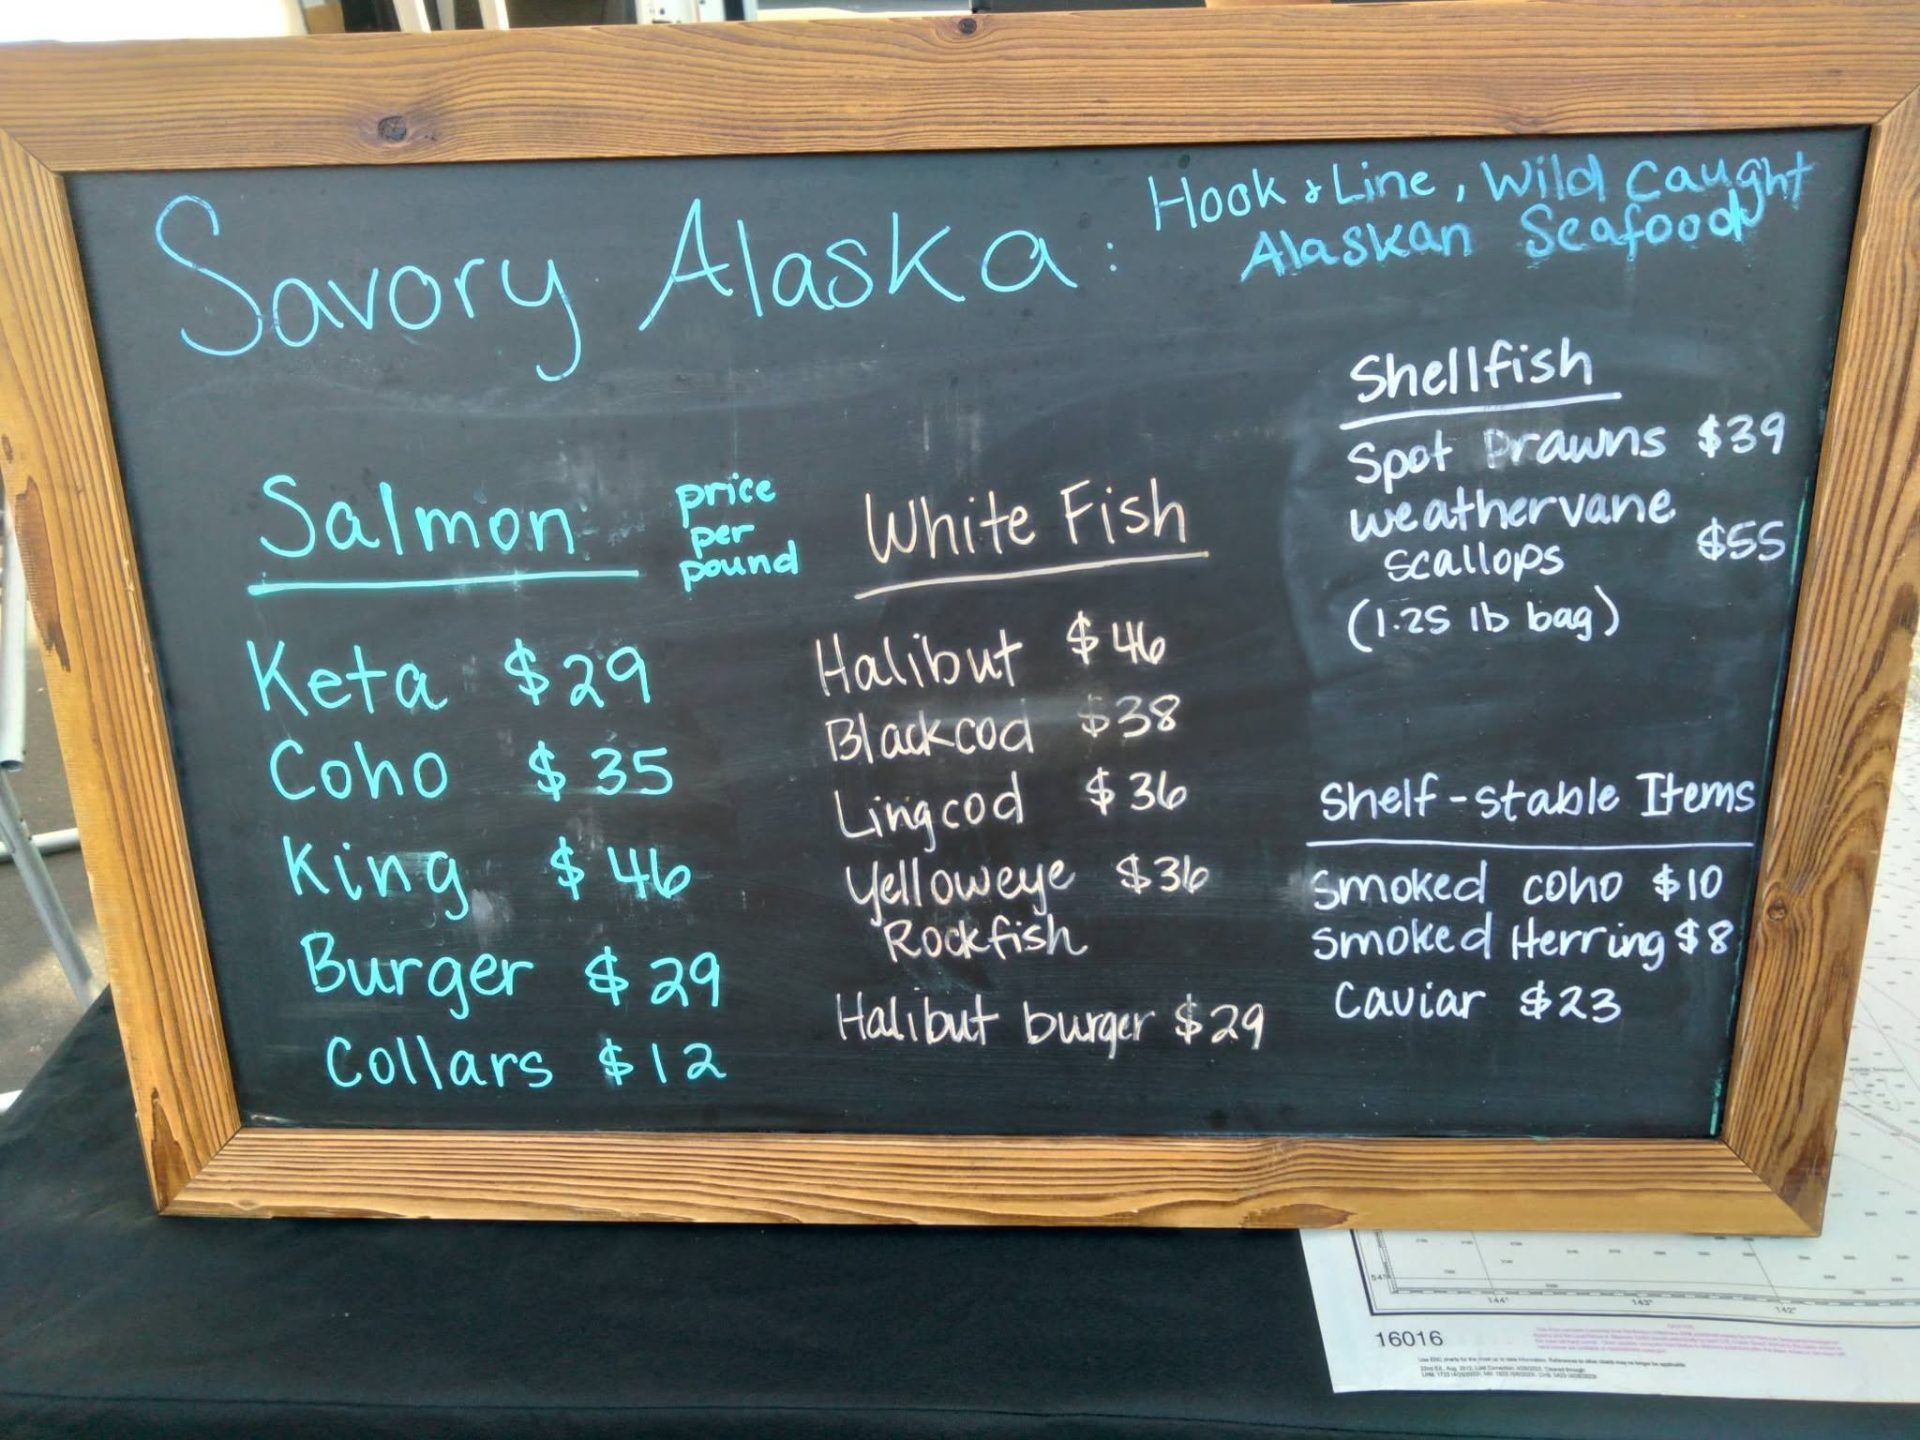 Savory Alaska:
Hook & Line, Wild Caught
Alaskan Seafood
Salmon
price
per
pound
Keta $29
Coho $35
King $46
Burger $29
Collars $12
White Fish
Halibut $46
Blackcod $38
Lingcod $36
Yelloweye $36
Rockfish
Halibut burger $29
Shellfish
Spot Prawns $39
weathervane
scallops $55
(1.25 lb bag)
Shelf-stable Items
Smoked coho $10
Smoked Herring $8
Caviar $23
54°
144°
143°
142°
16016